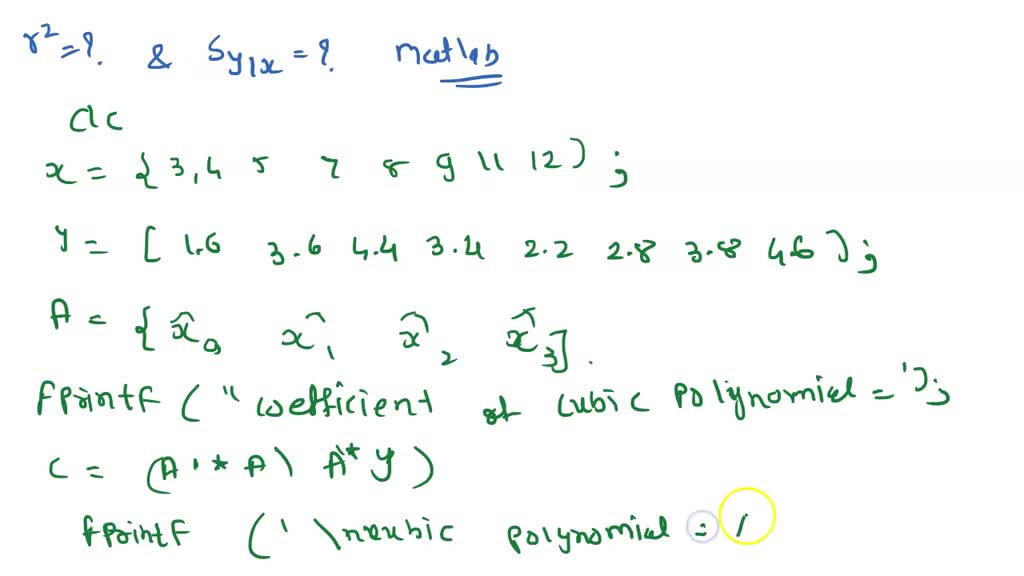 r² = ? & Sy/x = ? matlab
clc
x = { 3,4 5 7 8 9 11 12 ) ;
Y = [ 1.6 3.6 4.4 3.4 2.2 2.8 3.8 4.6 ) ;
A = { x̂0 x̂1 x̂2 x̂3 ] .
fprintf ( " coefficient of cubic polynomial = ') ;
C = (A' * A \ A'* y )
fprintf ( ' \ncubic polynomial = /